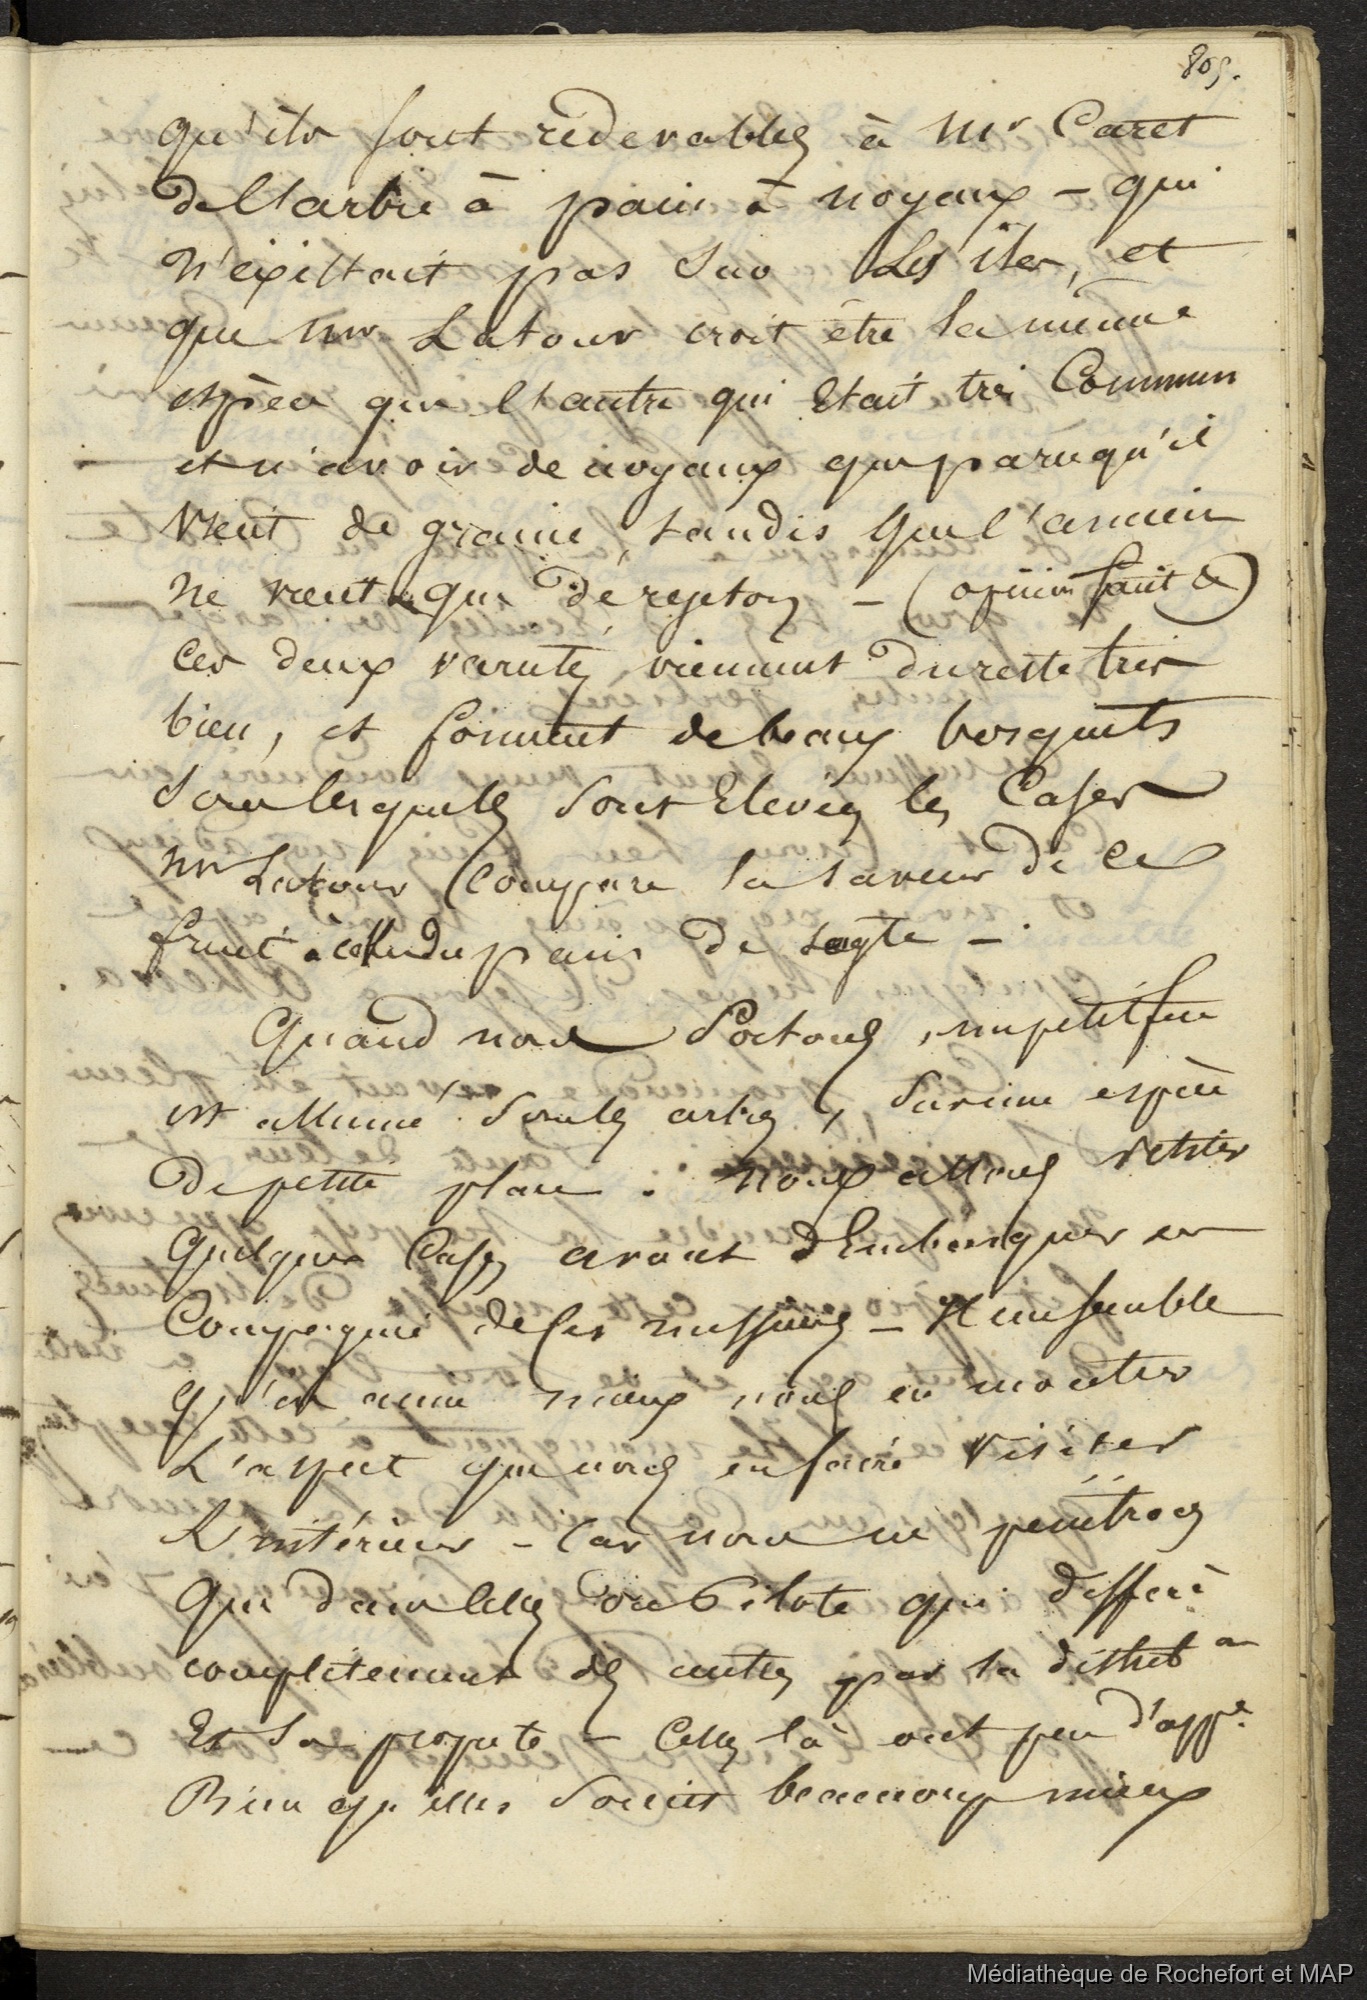 805.
qu'ils sont redevables à Mr Caret
de l'arbre à pain à noyaux – qui
n'existait pas sur les îles, et
que Mr Latour croit être la même
espèce que l'autre qui était très commun
et n'avoir de noyaux que parcequ'il
vient de graine, tandis que l'ancien
ne vient que de rejetons – (opinion
ces deux variétés viennent du reste très
bien, et forment de beaux bosquets
sous lesquels sont élevées les cases
Mr Latour compare la saveur de ce
fruit à celle du pain de –
Quand nous sortons, un petit feu
est allumé sous les arbres, sur une espèce
de petite place : nous allons visiter
quelques cases avant d'embarquer en
compagnie de ces messieurs – Il me semble
qu'on aime mieux nous en montrer
l'aspect que nous en faire visiter
l'intérieur – car nous ne pénétrons
que dans celle du Pilote qui diffère
complètement des autres par la distribon
et sa propreté – Celles là ont peu d'appce
Bien qu'elles soient beaucoup mieux
Médiathèque de Rochefort et MAP